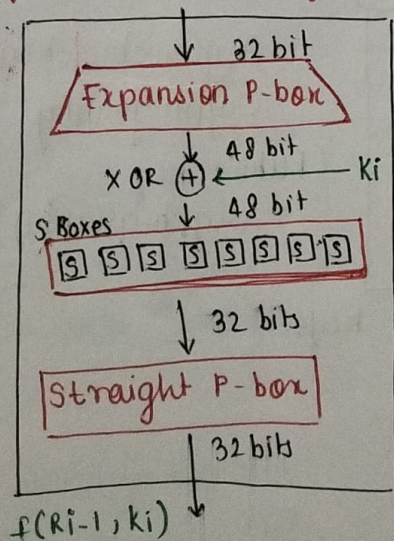 32 bit
Expansion P-box
48 bit
XOR + Ki
48 bit
S Boxes
S S S S S S S S
32 bits
Straight P-box
32 bits
f(Ri-1, Ki)